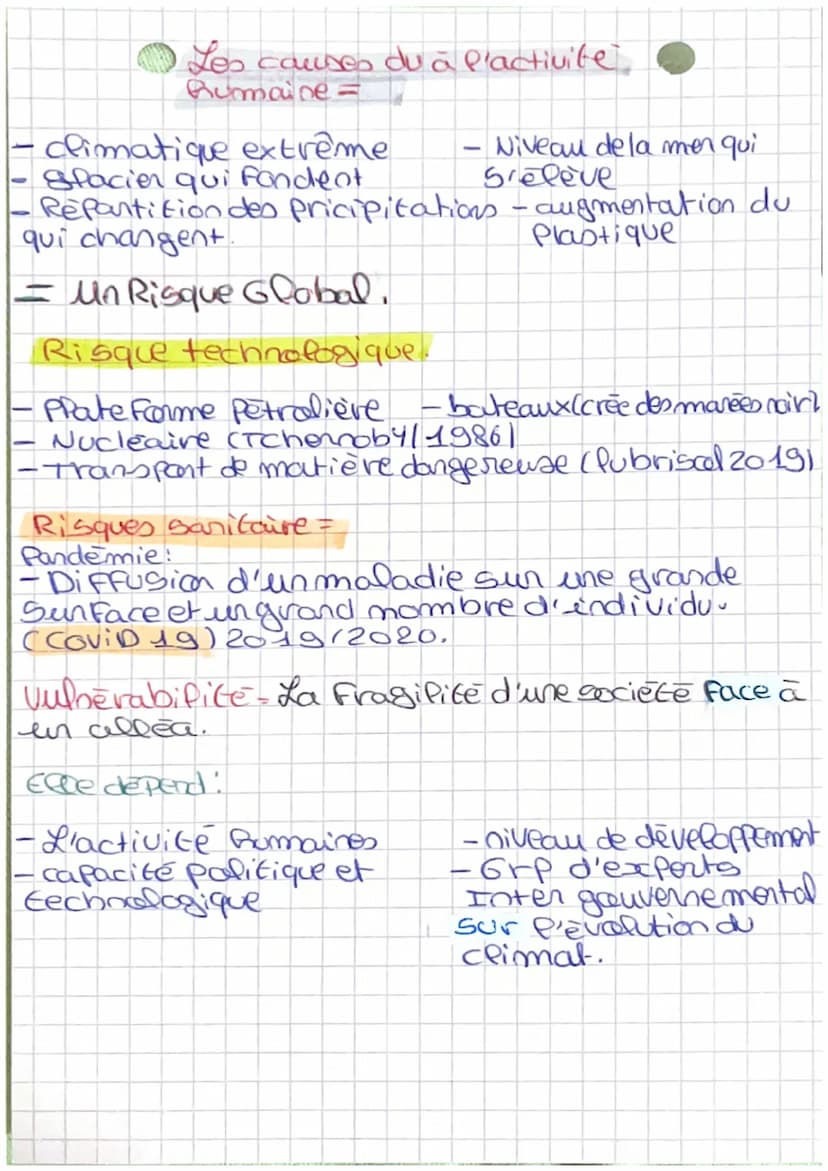 Les causes du à l'activité
humaine =
- climatique extrême
- glacier qui fondent
- Répartition des pricipitations
qui changent.
- Niveau de la mer qui
s'élève
- augmentation du
plastique
= Un Risque Global.
Risque technologique.
- Plate forme pétrolière - bateaux (crée des marées noir)
- Nucléaire (Tchernobyl 1986)
- Transport de matière dangereuse (Lubriscol 2019)
Risques sanitaire =
Pandémie:
- Diffusion d'un maladie sur une grande
surface et un grand nombre d'individu.
(COViD 19) 2019/2020.
Vulnérabilité = La fragilité d'une société face à
un alléa.
Elle dépend:
- L'activité humaines
- capacité politique et
technologique
- niveau de développement
- Grp d'experts
Inter gouvernemental
sur l'évolution du
climat.